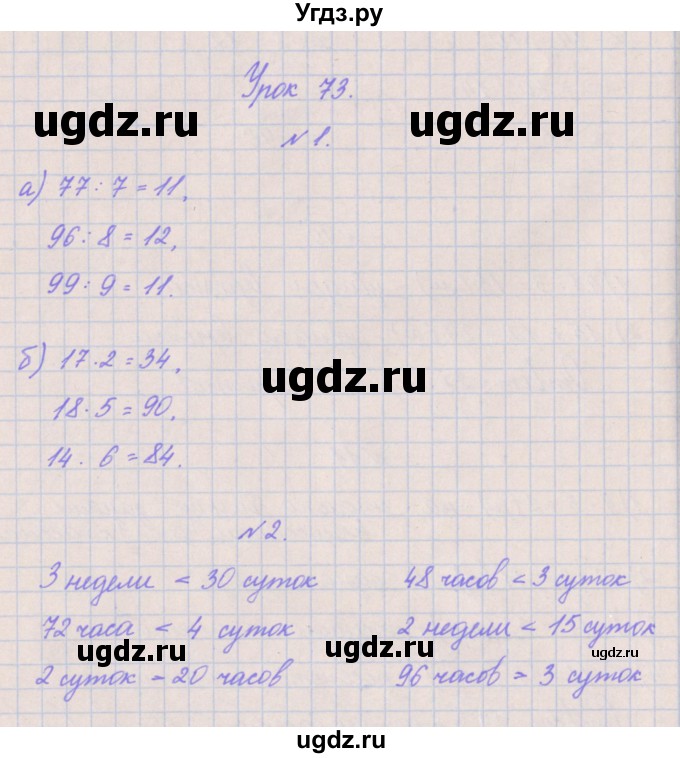 Угдз.ру
Урок 73.
ugdz.ru ugdz.ru
№1.
а) 77:7=11,
96:8=12,
99:9=11.
б) 17·2=34,
ugdz.ru
18·5=90,
14·6=84.
№2.
3 недели < 30 суток 48 часов < 3 суток
72 часа < 4 суток 2 недели < 15 суток
ugdz.ru ugdz.ru ugdz.ru
2 суток > 20 часов 96 часов > 3 суток
ugdz.ru